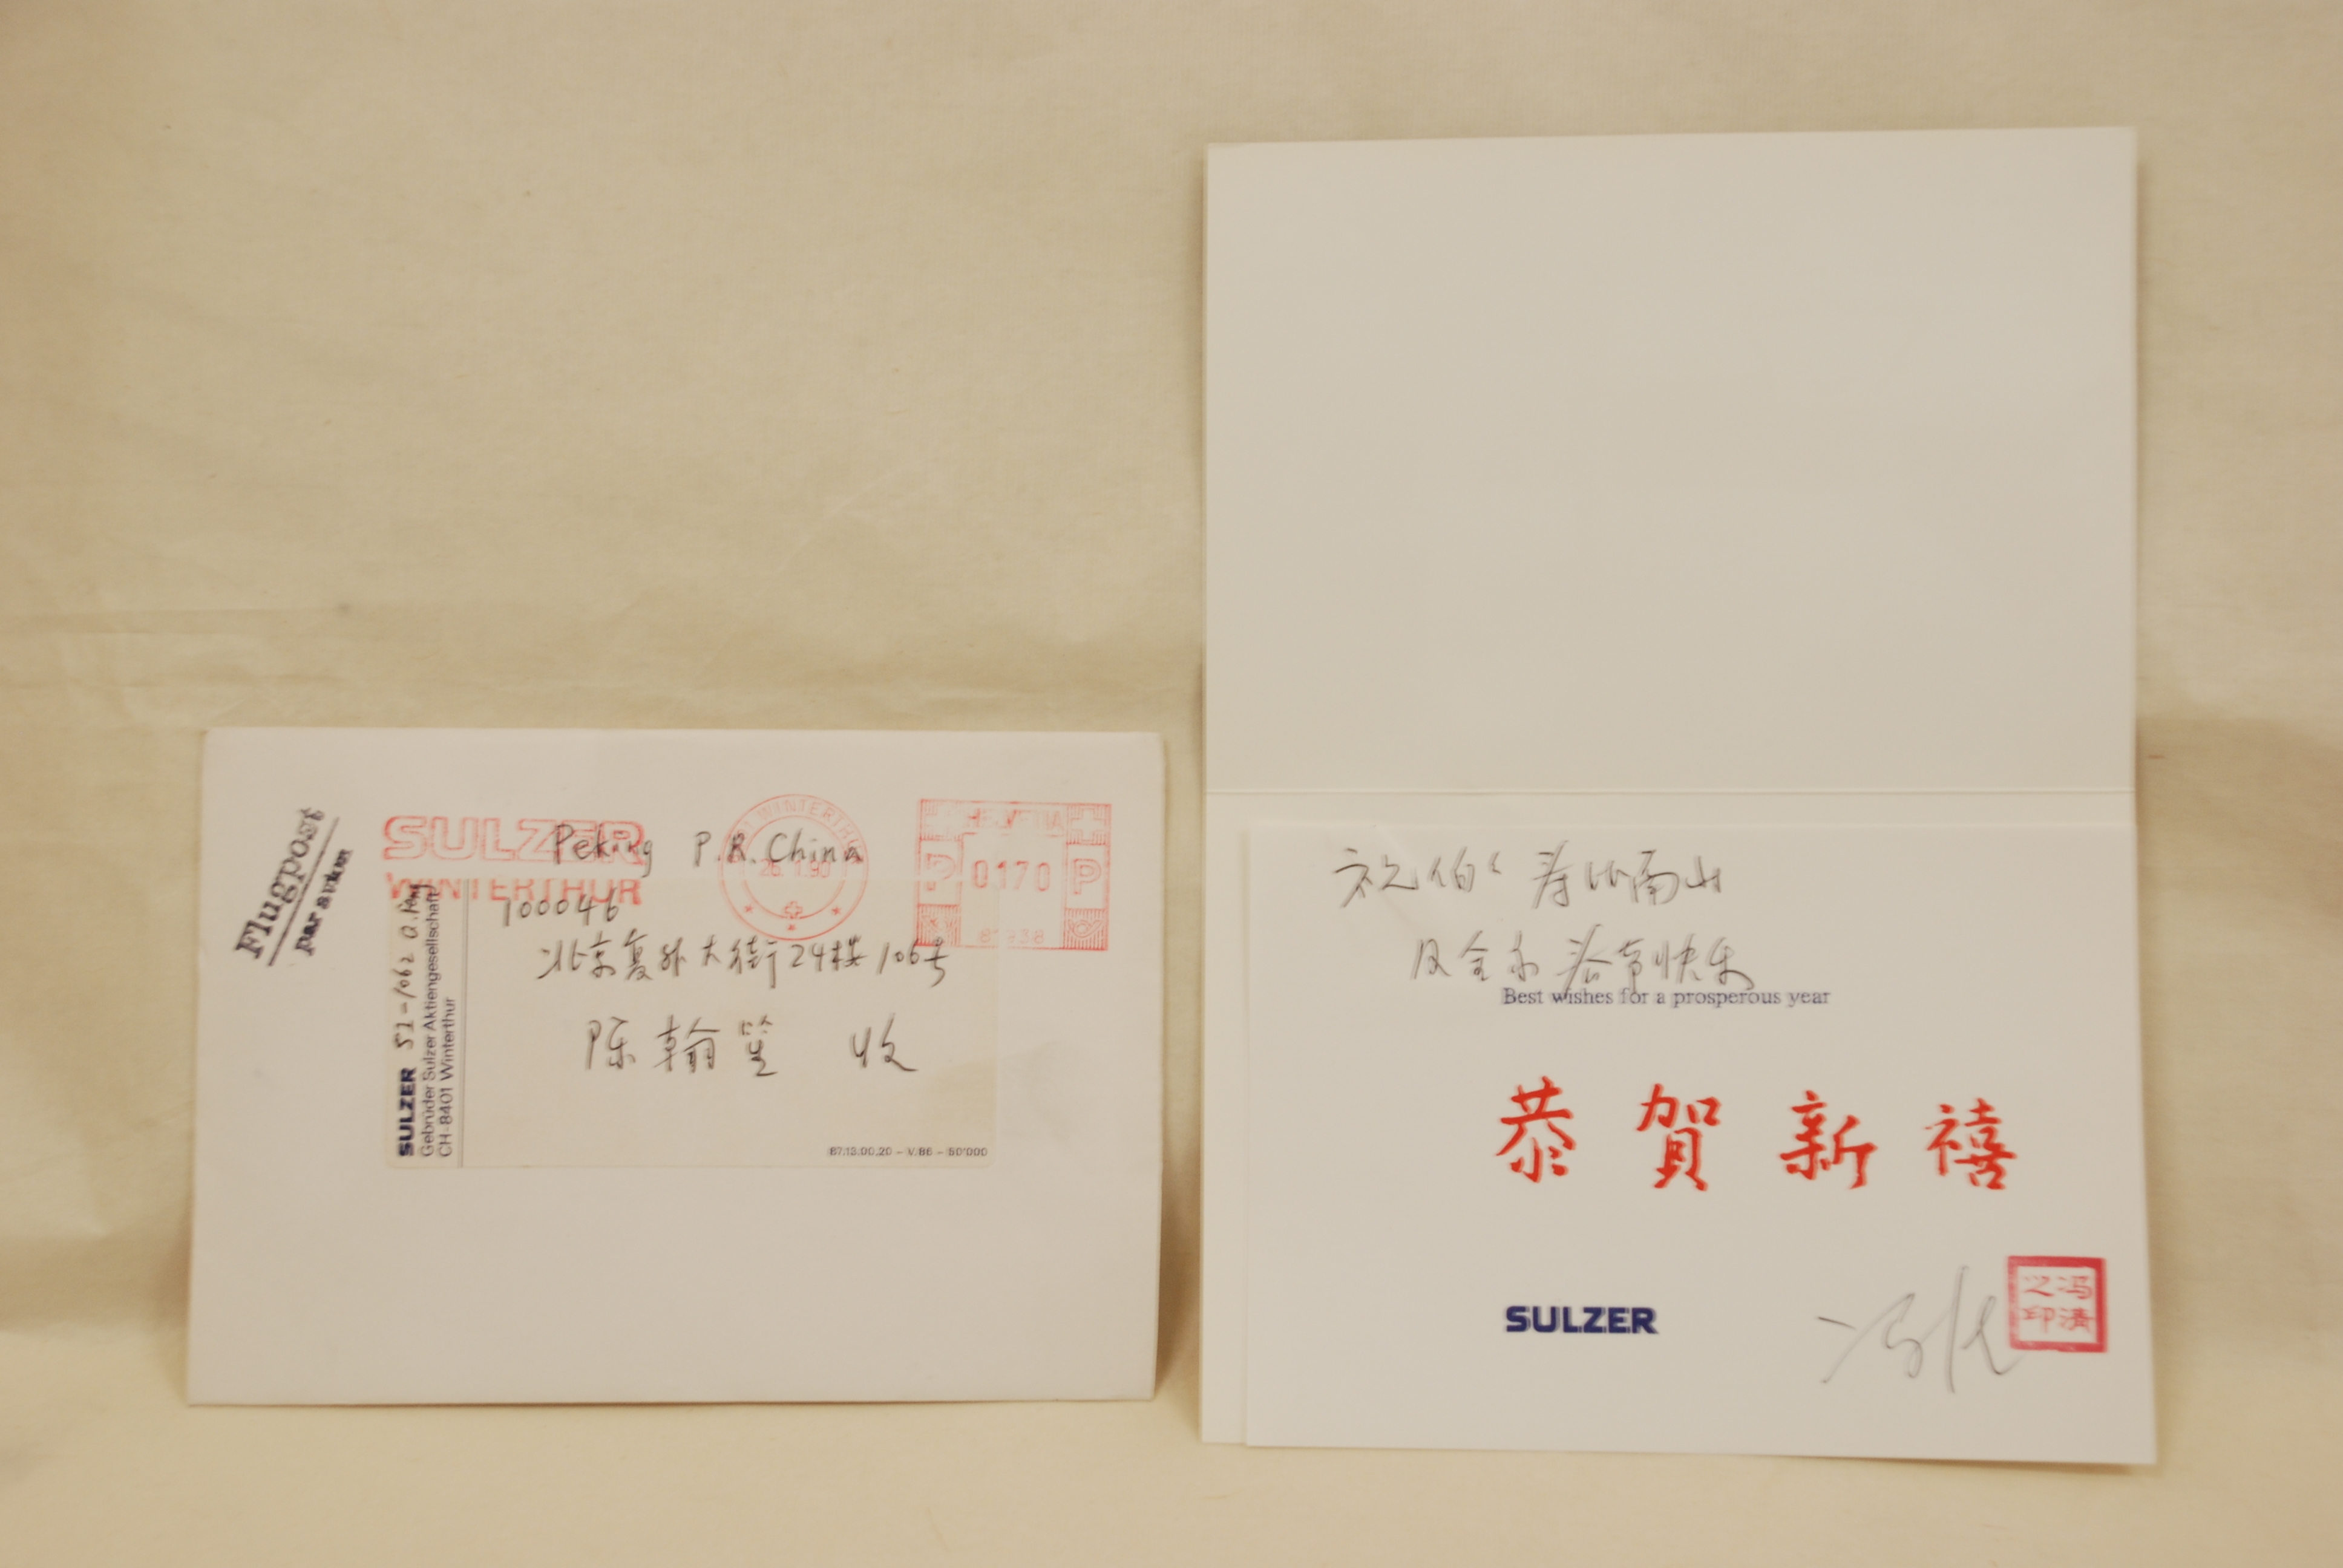 Flugpost
par avion
SULZER
WINTERTHUR
Peking P.R. China
WINTERTHUR
26.1.90
HELVETIA
P 0170 P
100046
北京复外大街24楼106号
陈翰笙 收
SULZER 51-1062 Q. Feng
Gebrüder Sulzer Aktiengesellschaft
CH-8401 Winterthur
87.13.00.20 – V.86 – 50'000
祝伯伯 寿比南山
及全家 春节快乐
Best wishes for a prosperous year
恭賀新禧
SULZER
冯清之印